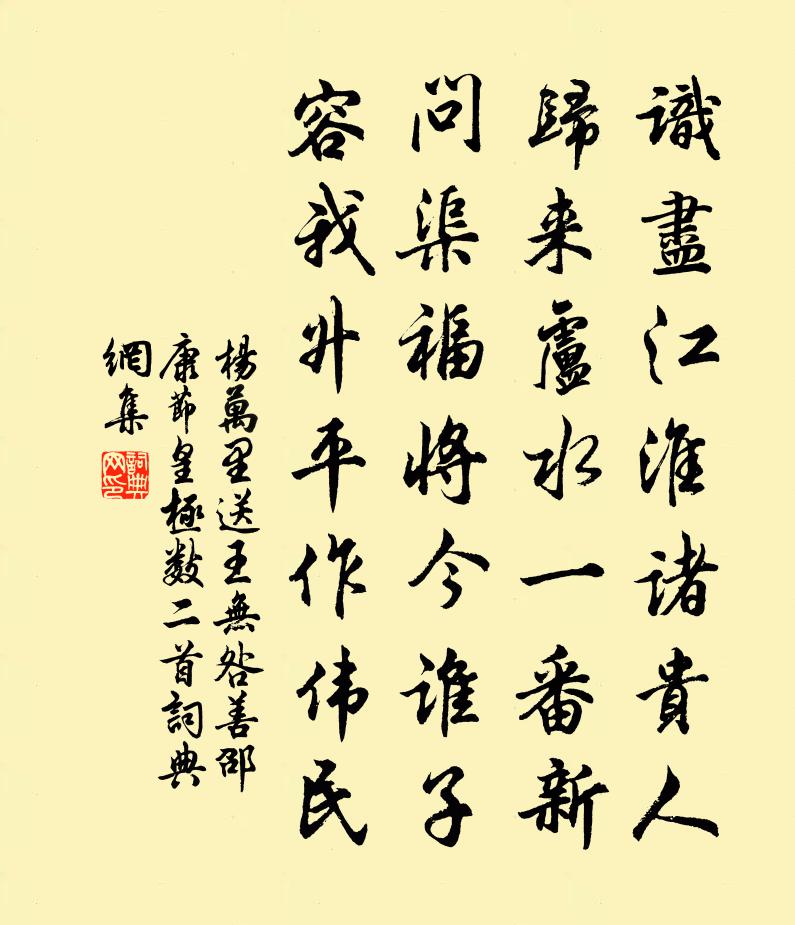 識盡江淮諸貴人
歸来盧水一番新
問渠福將今誰子
容我升平作伟民
楊萬里送王無咎善邵
康節皇極数二首詞典
網集
詞典网印